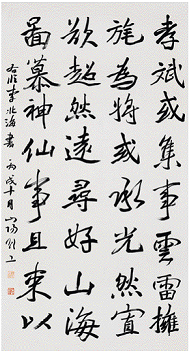 孝斌或集事雲雷擁
旄為將或承光然宣
欲超然遠尋好山海
啚慕神仙事且東以
右臨李北海書 丙戌十月